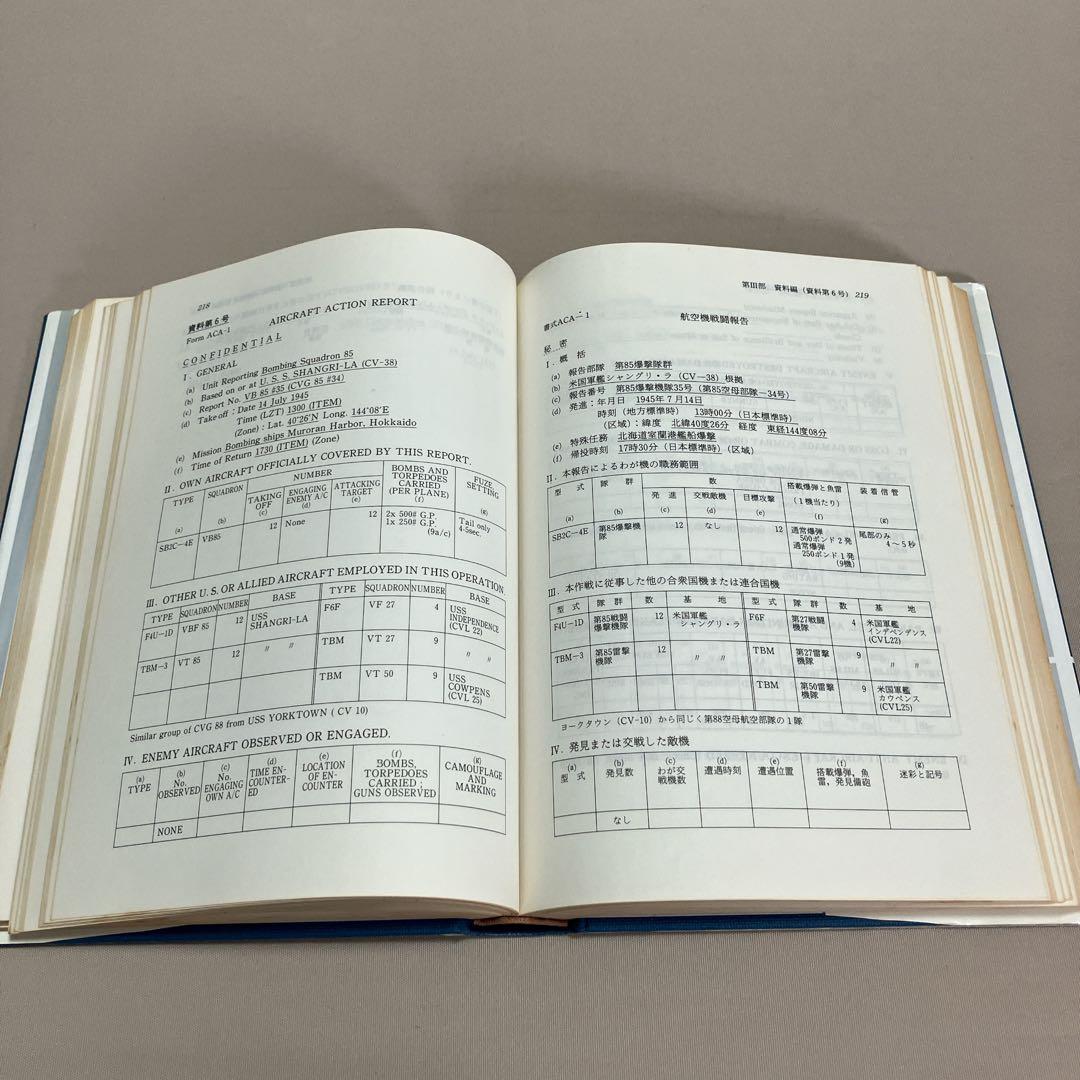 218
資料第6号
Form ACA-1
AIRCRAFT ACTION REPORT
CONFIDENTIAL
I. GENERAL
(a) Unit Reporting Bombing Squadron 85
(b) Based on or at U. S. S. SHANGRI-LA (CV-38)
(c) Report No. VB 85 #35 (CVG 85 #34)
(d) Take off : Date 14 July 1945
Time (LZT) 1300 (ITEM)
(Zone) : Lat. 40°26′N Long. 144°08′E
(e) Mission Bombing ships Muroran Harbor, Hokkaido
(f) Time of Return 1730 (ITEM) (Zone)
II. OWN AIRCRAFT OFFICIALLY COVERED BY THIS REPORT.
TYPE (a) SQUADRON (b) NUMBER TAKING OFF (c) ENGAGING ENEMY A/C (d) ATTACKING TARGET (e) BOMBS AND TORPEDOES CARRIED (PER PLANE) (f) FUZE SETTING (g)
SB2C-4E VB85 12 None 12 2x 500# G.P. 1x 250# G.P. (9a/c) Tail only 4-5sec.
III. OTHER U. S. OR ALLIED AIRCRAFT EMPLOYED IN THIS OPERATION.
TYPE SQUADRON NUMBER BASE TYPE SQUADRON NUMBER BASE
F4U-1D VBF 85 12 USS SHANGRI-LA F6F VF 27 4 USS INDEPENDENCE (CVL 22)
TBM-3 VT 85 12 〃 〃 TBM VT 27 9 〃 〃
TBM VT 50 9 USS COWPENS (CVL 25)
Similar group of CVG 88 from USS YORKTOWN ( CV 10)
IV. ENEMY AIRCRAFT OBSERVED OR ENGAGED.
(a) TYPE (b) No. OBSERVED (c) No. ENGAGING OWN A/C (d) TIME EN-COUNTER-ED (e) LOCATION OF EN-COUNTER (f) BOMBS, TORPEDOES CARRIED ; GUNS OBSERVED (g) CAMOUFLAGE AND MARKING
NONE
第III部 資料編 (資料第6号) 219
書式ACA－1
航空機戦闘報告
秘 密
I. 概 括
(a) 報告部隊 第85爆撃隊群
(b) 米国軍艦シャングリ・ラ (CV―38) 根拠
(c) 報告番号 第85爆撃機隊35号 (第85空母部隊－34号)
(d) 発進：年月日 1945年7月14日
時刻 (地方標準時) 13時00分 (日本標準時)
(区域)：緯度 北緯40度26分 経度 東経144度08分
(e) 特殊任務 北海道室蘭港艦船爆撃
(f) 帰投時刻 17時30分 (日本標準時) (区域)
II. 本報告によるわが機の職務範囲
型 式 (a) 隊 群 (b) 数 発 進 (c) 交戦敵機 (d) 目標攻撃 (e) 搭載爆弾と魚雷 (1機当たり) (f) 装着信管 (g)
SB2C―4E 第85爆撃機隊 12 なし 12 通常爆弾 500ポンド2発 通常爆弾 250ポンド1発 (9機) 尾部のみ 4～5秒
III. 本作戦に従事した他の合衆国機または連合国機
型 式 隊 群 数 基 地 型 式 隊 群 数 基 地
F4U―1D 第85戦闘爆撃機隊 12 米国軍艦 シャングリ・ラ F6F 第27戦闘機隊 4 米国軍艦 インデペンデンス (CVL22)
TBM―3 第85雷撃機隊 12 〃 〃 TBM 第27雷撃機隊 9 〃 〃
TBM 第50雷撃機隊 9 米国軍艦 カウペンス (CVL25)
ヨークタウン (CV-10) から同じく第88空母航空部隊の1隊
IV. 発見または交戦した敵機
(a) 型 式 (b) 発見数 (c) わが交戦機数 (d) 遭遇時刻 (e) 遭遇位置 (f) 搭載爆弾，魚雷，発見備砲 (g) 迷彩と記号
なし